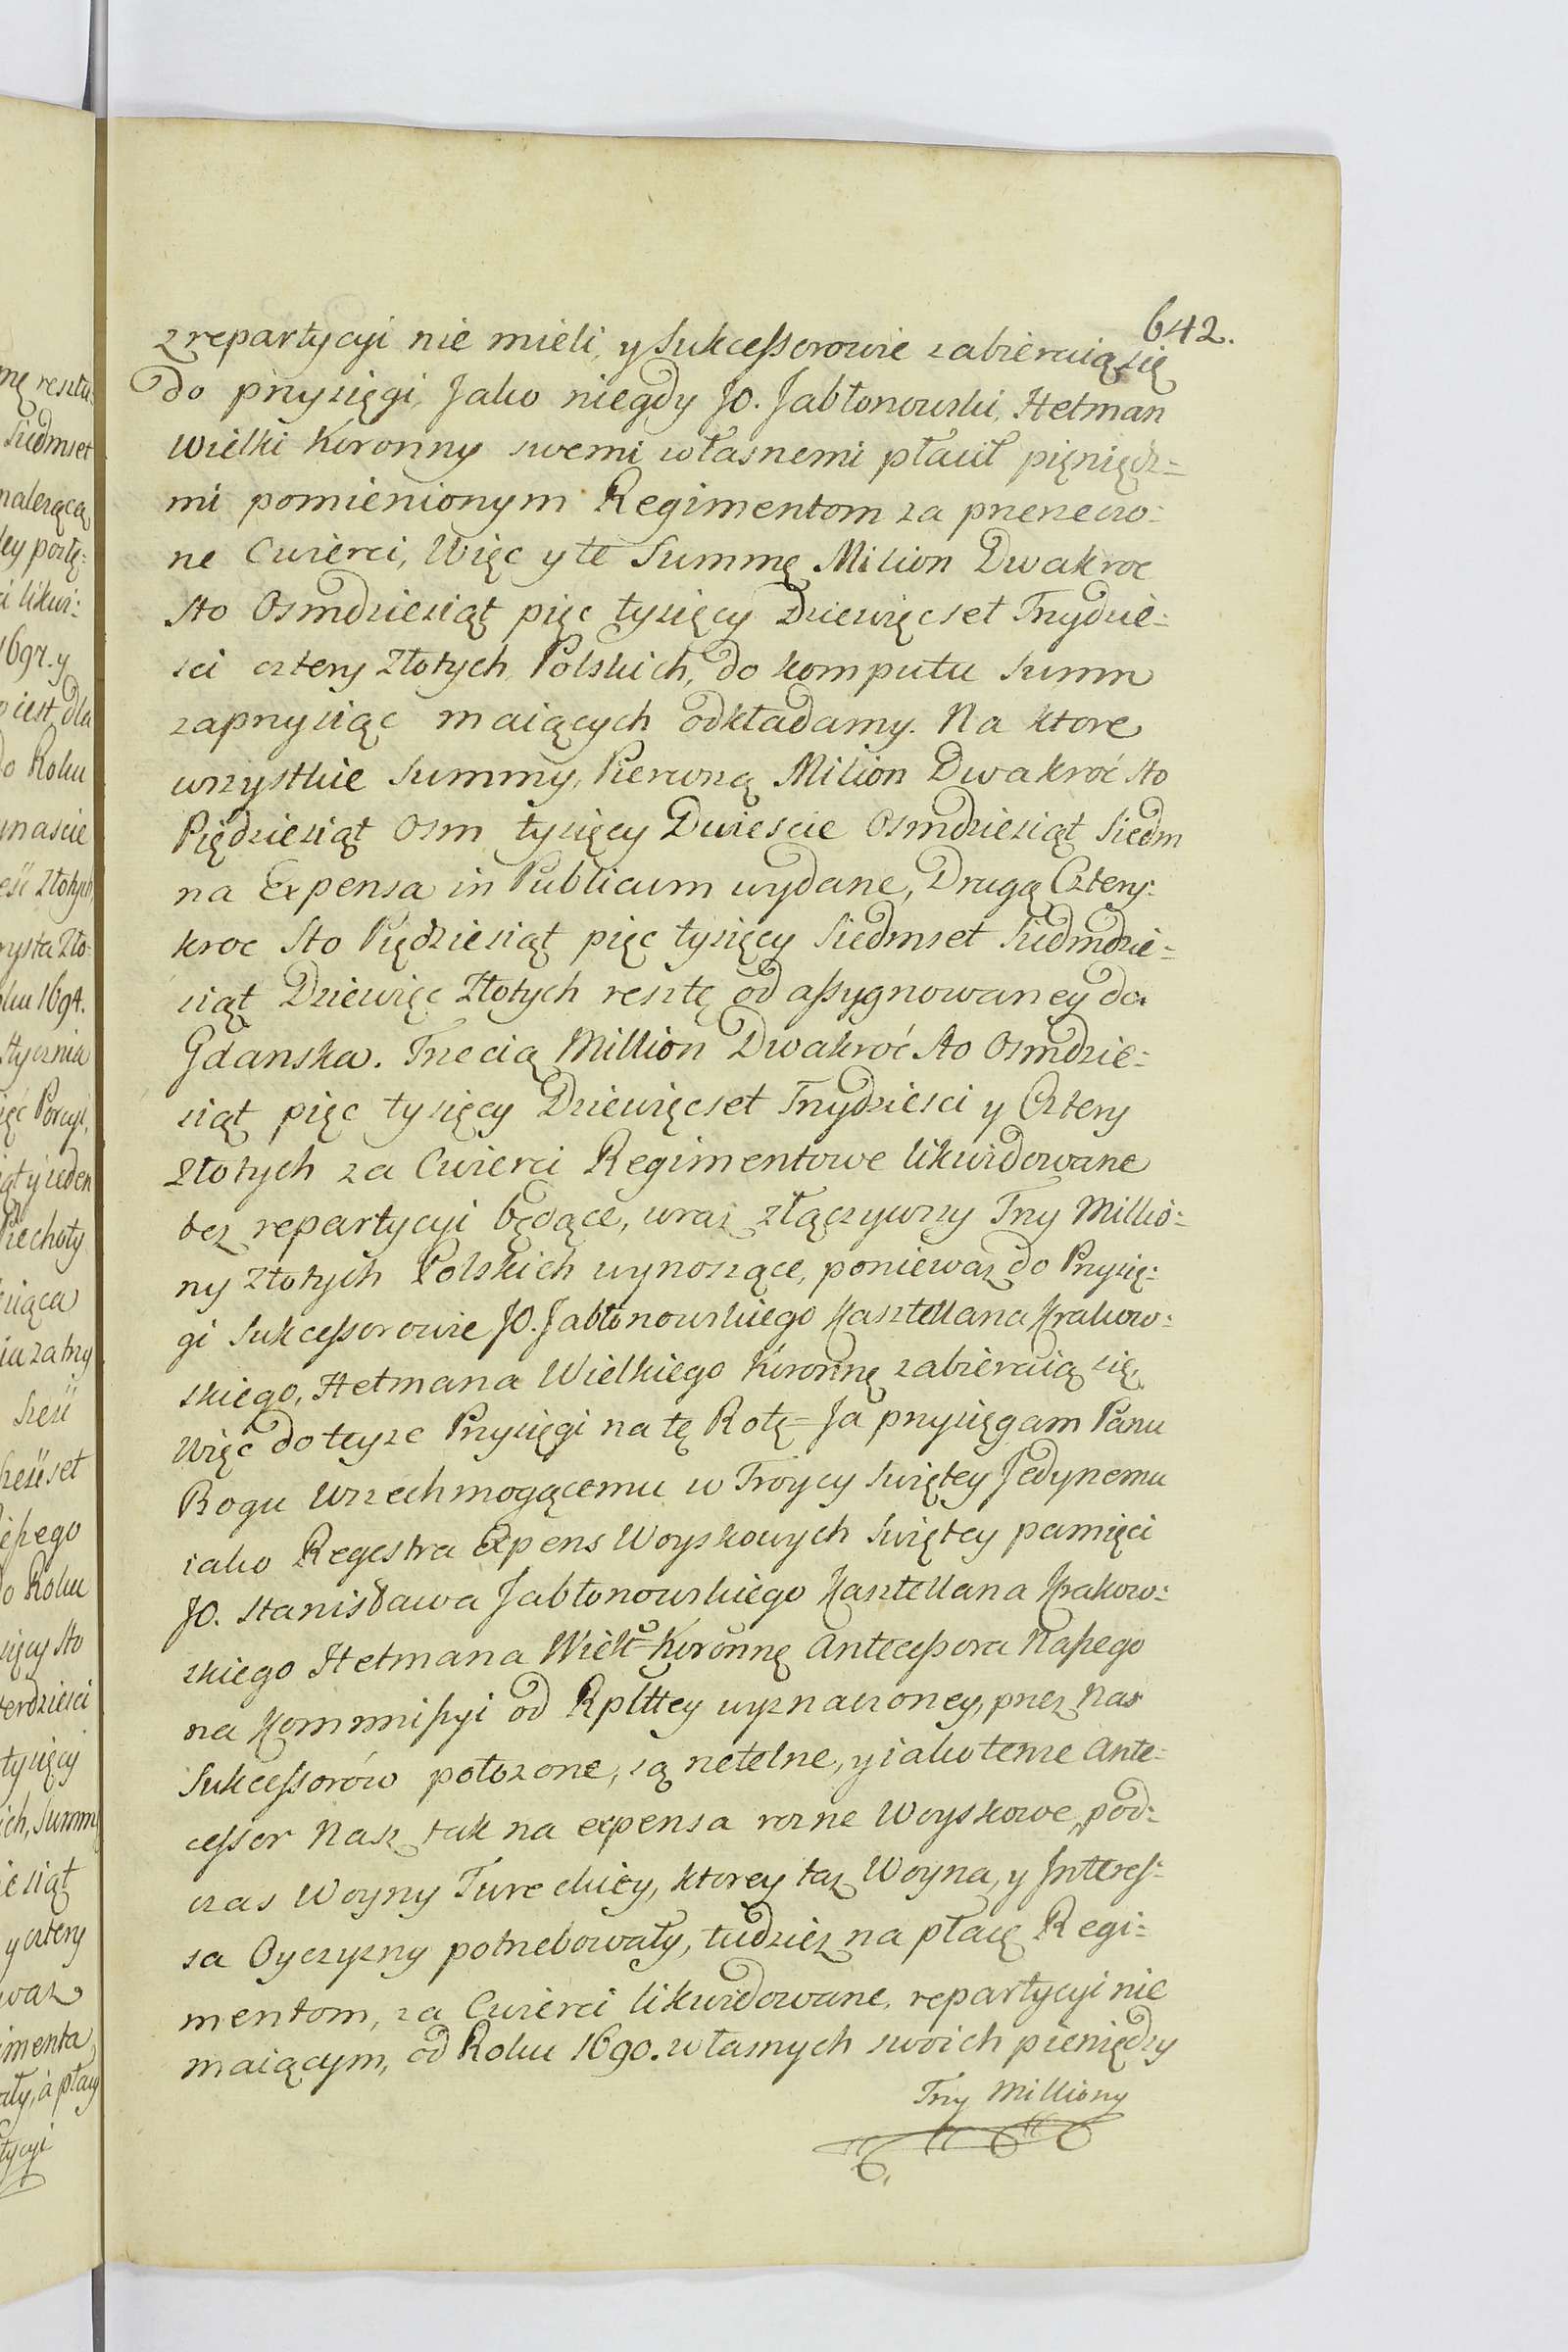 642.
z repartycyi nie mieli, y Sukcessorowie zabieraią się
do przysięgi, Jako niegdy JO. Jabłonowski, Hetman
Wielki Koronny swemi własnemi płacił pięniędz=
mi pomienionym Regimentom za przerzeczo=
ne Cwierci, Więc y te Summę Milion Dwakroc
sto Osmdziesiąt pięc tysięcy Dziewięcset Trzydzie=
sci cztery Złotych Polskich, do komputu summ
zaprzysiąc maiących odkładamy. Na ktore
wszystkie Summy, Pierwszą Milion Dwakroć sto
Piędziesiąt Osm tysięcy Dwieście Osmdziesiąt Siedm
na Expensa in Publicum wydane, Drugą Cztery=
kroc Sto Piędziesiąt pięc tysięcy Siedmset Siedmdzie=
siąt Dziewięc Złotych resztę od assygnowaney do
Gdanska. Trzecią Million Dwakroć sto Osmdzie=
siąt pięc tysięcy Dziewięcset Trzydziesci y Cztery
Złotych za Cwierci Regimentowe likwidowane
bez repartycyi będące, wraz złączywszy Trzy Millio=
ny Złotych Polskich wynoszące, poniewaz do Przysię=
gi Sukcessorowie JO. Jabłonowskiego Kasztellana Krakow=
skiego, Hetmana Wielkiego Koronnę zabieraią się
Więc do teyze Przysięgi na tę Rotę = Ja przysięgam Panu
Bogu Wszechmogącemu w Troycy Swiętey Jedynemu
iako Regestra Expens Woyskowych Swiętey pamięci
JO. Stanisława Jabłonowskiego Kasztellana Krakow=
skiego Hetmana Wielk= Koronnę Antecessora Naszego
na Kommissyi od Rplttey wyznaczoney, przez Nas
Sukcessorów połozone, są rzetelne, y iako tenze Ante=
cessor Nasz tak na expensa rozne Woyskowe pod=
czas Woyny Tureckiey, ktorey taz Woyna, y Interes=
sa Oyczyzny potrzebowały, tudziez na płacę Regi=
mentom, za Cwierci likwidowane, repartycyi nie
maiącym, od Roku 1690. własnych swoich pieniędzy
Trzy Milliony